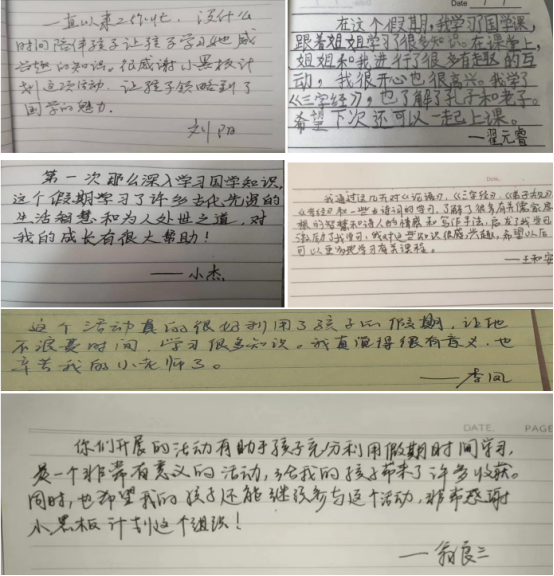 一直以来工作忙，没什么
时间陪伴孩子让孩子学习她感
兴趣的知识。很感谢小黑板计
划这项活动，让孩子领略到了
国学的魅力。
刘阳
Date
在这个假期，我学习了国学课，
跟着姐姐学习了很多知识。在课堂上，
姐姐和我进行了很多有趣的互
动，我很开心也很高兴。我学了
《三字经》，也了解了孔子和老子。
希望下次还可以一起上课。
——翟元睿
第一次那么深入学习国学知识，
这个假期学习了许多古代先贤的
生活智慧和为人处世之道，对
我的成长有很大帮助！
——小杰
我通过这几天对《论语》，《三字经》，《弟子规》
《孝经》和一些古诗词的学习，了解了很多有关儒家思
想的智慧和诗人的情感和写作手法，启发了我学习
激励了我学习，我对这些知识很感兴趣，希望以后
可以更多地学习有关课程。
——王和
这个活动真的很好利用了孩子的假期，让他
不浪费时间，学习很多知识。我真觉得很有意义，也
辛苦我的小老师了。
——李凤
DATE. PAGE
你们开展的活动有助于孩子充分利用假期时间学习，
是一个非常有意义的活动，给我的孩子带来了许多收获。
同时，也希望我的孩子还能继续参与这个活动，非常感谢
小黑板计划这个组织！
——翁良三